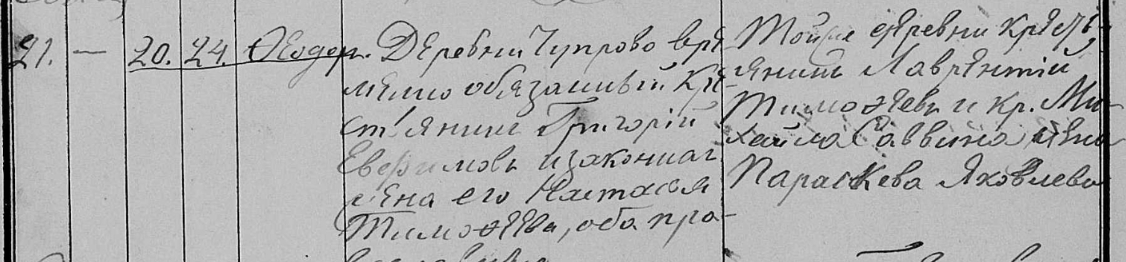 21. — 20. 24. Ѳеодоръ.
Деревни Чупрово вре-
менно обязанный кре-
стьянинъ Григорій
Евѳимовъ и законная
жена его Настасья
Тимоѳеева, оба пра-
вославные
Тойже деревни кресть-
янинъ Лаврентій
Тимоѳеевъ и кр. Ми-
хаила Саввина жена
Параскева Яковлева